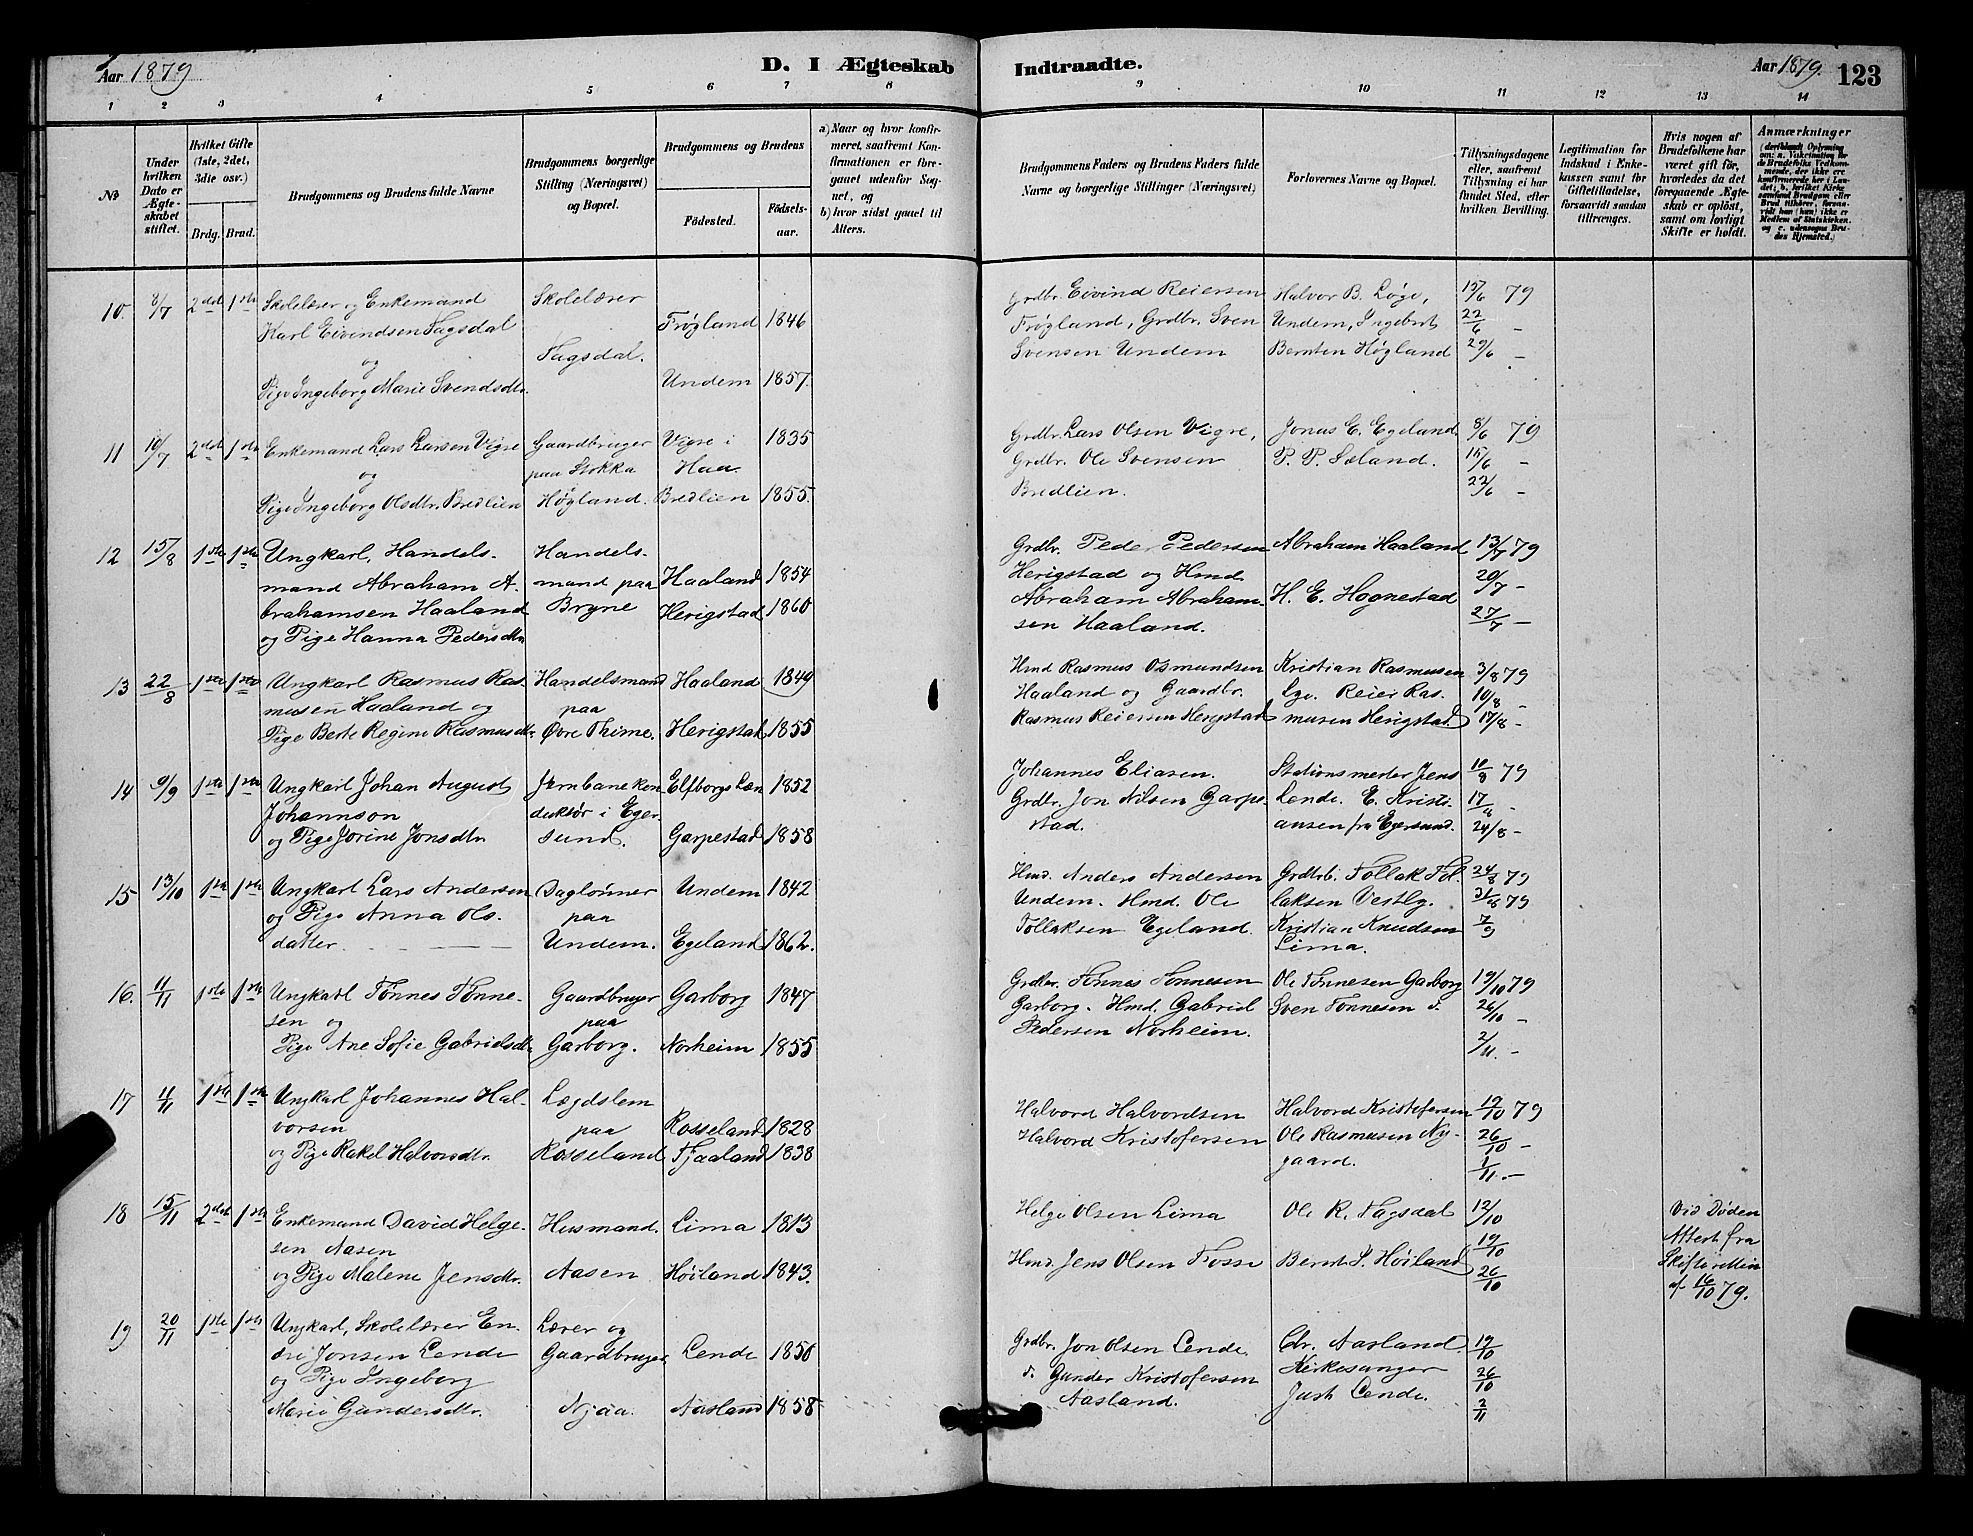 Aar 1879
D. I Ægteskab
Indtraadte.
Aar 1879.
123
1 2 3 4 5 6 7 8 9 10 11 12 13 14
№
Under hvilken Dato er Ægteskabet stiftet.
Hvilket Gifte (1ste, 2det, 3die osv.)
Brdg. Brud.
Brudgommens og Brudens fulde Navne
Brudgommens borgerlige Stilling (Næringsvei) og Bopæl.
Brudgommens og Brudens
Fødested.
Fødselsaar.
a) Naar og hvor konfirmeret, saafremt Konfirmationen er foregaaet udenfor Sognet, og
b) hvor sidst gaaet til Alters.
Brudgommens Faders og Brudens Faders fulde Navne og borgerlige Stillinger (Næringsvei)
Forlovernes Navne og Bopæl.
Tillysningsdagene eller, saafremt Tillysning ei har fundet Sted, efter hvilken Bevilling.
Legitimation for Indskud i Enkekassen samt for Giftetilladelse, forsaavidt saadan tiltrænges.
Hvis nogen af Brudefolkene har været gift før, hvorledes da det foregaaende Ægteskab er opløst, samt om lovligt Skifte er holdt.
Anmærkninger
10. 8/7 2det 1ste Skolelærer og Enkemand
Karl Eivindsen Tagsdal
og
Pige Ingeborg Marie Svendsdtr.
Skolelærer
Tagsdal.
Frøgland 1846
Undem 1857.
Grdbr. Eivind Reiersen
Frøgland, Grdbr. Sven
Svensen Undem
Halvor B. Løge,
Undem, Ingebret
Berntsen Høgland
15/6 79
22/6 -
29/6 -
11 10/7 2det 1ste Enkemand Lars Larsen Vigre
og
Pige Ingeborg Olsdtr. Bredlien
Gaardbruger
paa Stokka
Høgland.
Vigre i
Haa.
1835
Bredlien 1855.
Grdbr. Lars Olsen Vigre,
Grdbr. Ole Svensen
Bredlien.
Jonas E. Egeland.
P. P. Sæland.
8/6 79
15/6 -
22/6 -
12 15/8 1ste 1ste Ungkarl, Handels-
mand Abraham A-
brahamsen Haaland
og Pige Hanna Pedersdtr
Handels-
mand paa
Bryne
Haaland 1854
Herigstad 1860
Grdbr. Peder Pedersen
Herigstad og Hmd
Abraham Abraham-
sen Haaland.
Abraham Haaland
H. E. Hognestad
13/7 79
20/7 -
27/7 -
13 22/8 1ste 1ste Ungkarl Rasmus Ras-
musen Haaland og
Pige Berte Regine Rasmusdtr.
Handelsmand
paa
Øvre Thime.
Haaland 1849
Herigstad 1855
Hmd Rasmus Osmundsen
Haaland og Gaardbr.
Rasmus Reiersen Herigstad
Kristian Rasmusen
Lye. Reier Ras-
musen Herigstad
3/8 79
10/8 -
17/8 -
14 9/9 1ste 1ste Ungkarl Johan August
Johannson
og Pige Jorine Jonsdtr
Jernbanekon
duktør i Eger
sund.
Elfborgs Læn 1852
Garpestad 1858
Johannes Eliasen.
Grdbr. Jon Nilsen Garpe-
stad.
Stationsmester Jens
Lende. E. Kristi-
ansen fra Egersund.
10/8 79
17/8 -
24/8 -
15 13/10 1ste 1ste Ungkarl Lars Andersen
og Pige Anna Ols-
datter
Daglønner
paa
Undem.
Undem 1842
Egeland 1862.
Hmd. Anders Andersen
Undem. Hmd. Ole
Tollaksen Egeland.
Grdbr. Tollak Tol-
laksen Vestly.
Kristian Knudsen
Lima.
24/8 79
31/8 79
7/9
16. 11/11 1ste 1ste Ungkarl Tønnes Tønne-
sen og
Pige Ane Sofie Gabrielsdtr
Gaardbruger
paa
Garborg.
Garborg 1847
Norheim 1855
Grdbr. Tønnes Tønnesen
Garborg. Hmd. Gabriel
Pedersen Norheim.
Ole Tønnesen Garborg
Sven Tønnesen d.
19/10 79
26/10 -
2/11 -
17 11/11 1ste 1ste Ungkarl Johannes Hal-
vorsen
og Pige Rakel Halvorsdtr.
Lægdslem
paa
Rosseland
Rosseland 1828
Fjaaland 1838
Halvord Halvordsen
Halvord Kristofersen
Halvord Kristofersen
Ole Rasmusen Ny-
gaard.
19/10 79
26/10 -
1/11 -
18 15/11 2det 1ste Enkemand David Helge-
sen Aasen
og Pige Malene Jensdtr.
Husmand.
Aasen
Lima 1813
Høiland 1843.
Helge Olsen Lima
Hmd. Jens Olsen Fosse
Ole R. Tagsdal
Bernt S. Høiland
12/10
19/10
26/10
Ved Døden
Attest fra
Skifteretten
af 16/10 79.
19 20/11 1ste 1ste Ungkarl, Skolelærer En-
dre Jonsen Lende
og Pige Ingeborg
Marie Gundersdtr.
Lærer og
Gaardbruger
Njaa.
Lende 1850
Aasland 1858
Grdbr. Jon Olsen Lende
d. Gunder Kristofersen
Aasland.
Chr. Aasland.
Kirkesanger
Just Lende.
19/10
26/10
2/11